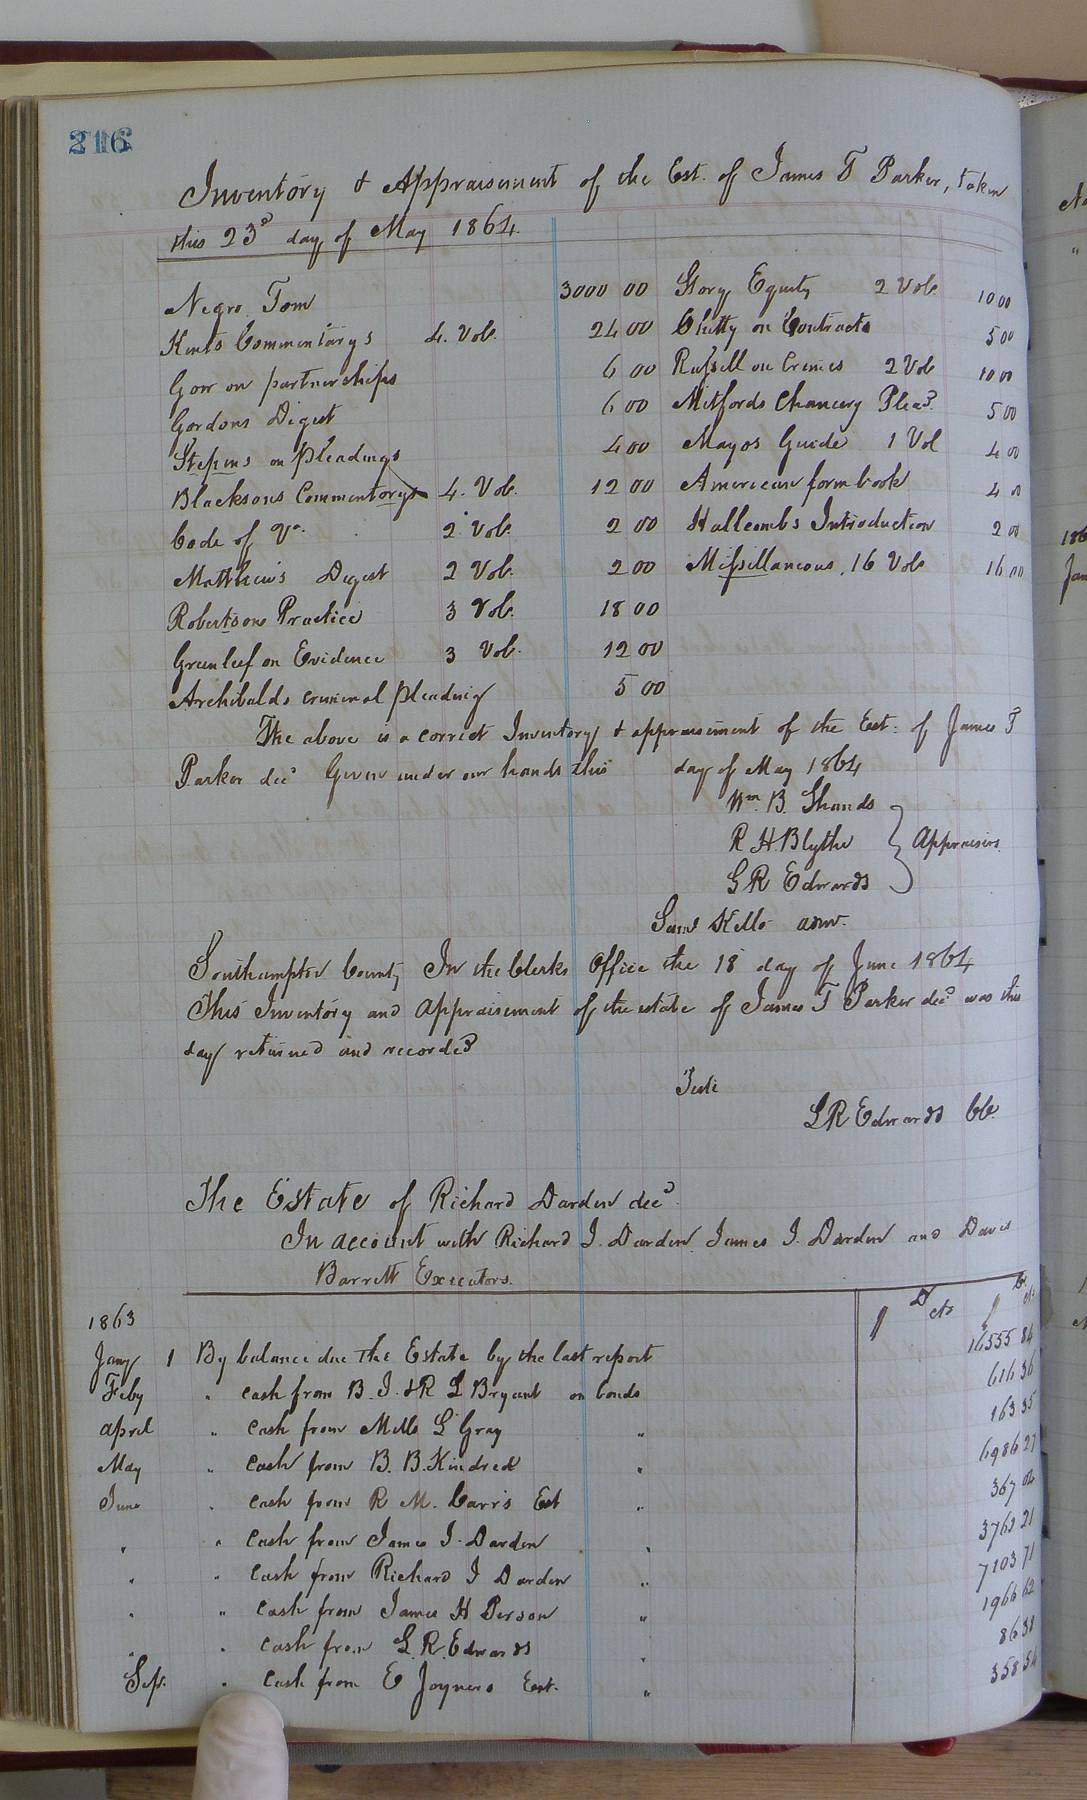 216
Inventory & Appraisement of the Est. of James T Parker, taken
this 23d day of May 1864.
Negro Tom 3000 00 Story Equity 2 Vols 10 00
Kents Commentarys 4. Vols. 24 00 Chitty on Contracts 5 00
Gow on partnerships 6 00 Russell on Crimes 2 Vols 10 00
Gordons Digest 6 00 Mitfords Chancery Plead. 5 00
Stepens on Pleadings 4 00 Mayos Guide 1 Vol 4 00
Blacksons Commentorys 4. Vols. 12 00 American form book 4 00
Code of Va. 2 Vols. 2 00 Hallcombs Introduction 2 00
Matthews Digest 2 Vols. 2 00 Missillaneous, 16 Vols 16 00
Robertsons Practice 3 Vols. 18 00
Greenleef on Evidence 3 Vols. 12 00
Archibalds criminal pleading 5 00
The above is a correct Inventory & appraisement of the Est. of James T
Parker decd Given under our hands this day of May 1864
Wm. B. Shands
R H. Blythe } Appraisers
G R Edwards
Saml Kello adm.
Southampton County In the Clerks Office the 18 day of June 1864
This Inventory and Appraisement of the estate of James T Parker decd was this
day returned and recorded
Teste
L R Edwards CC.
The Estate of Richard Darden decd.
In account with Richard J. Darden James J. Darden and Davis
Barrett Executors.
D cts Cr cts
1863
Jany 1 By balance due the Estate by the last report 16555 84
Feby " cash from B. J. & R L Bryant on bonds 616 36
April " cash from Mills L Gray " 163 35
May " cash from B. B. Kindred " 6986 27
June " cash from R M. Carrs Est " 367 02
" " cash from James J. Darden " 3763 21
" " cash from Richard J Darden " 7103 71
" " cash from James H Person " 1966 62
" " cash from L. R. Edwards " 86 38
Sept. " cash from E Joyners Est. " 358 54